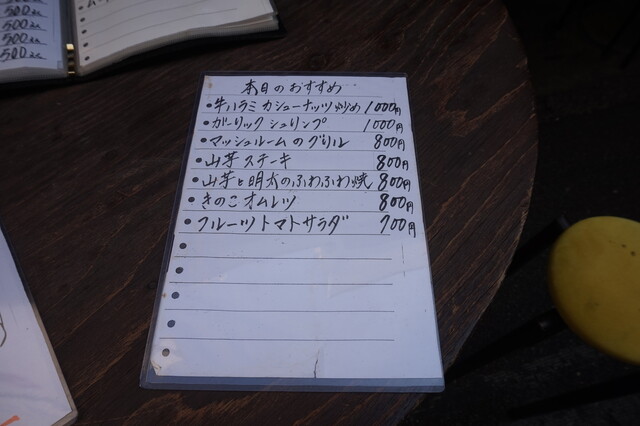 500えん
500えん
500えん
500えん
本日のおすすめ
牛ハラミカシューナッツ炒め 1000円
ガーリックシュリンプ 1000円
マッシュルームのグリル 800円
山芋ステーキ 800円
山芋と明太のふわふわ焼 800円
きのこオムレツ 800円
フルーツトマトサラダ 700円